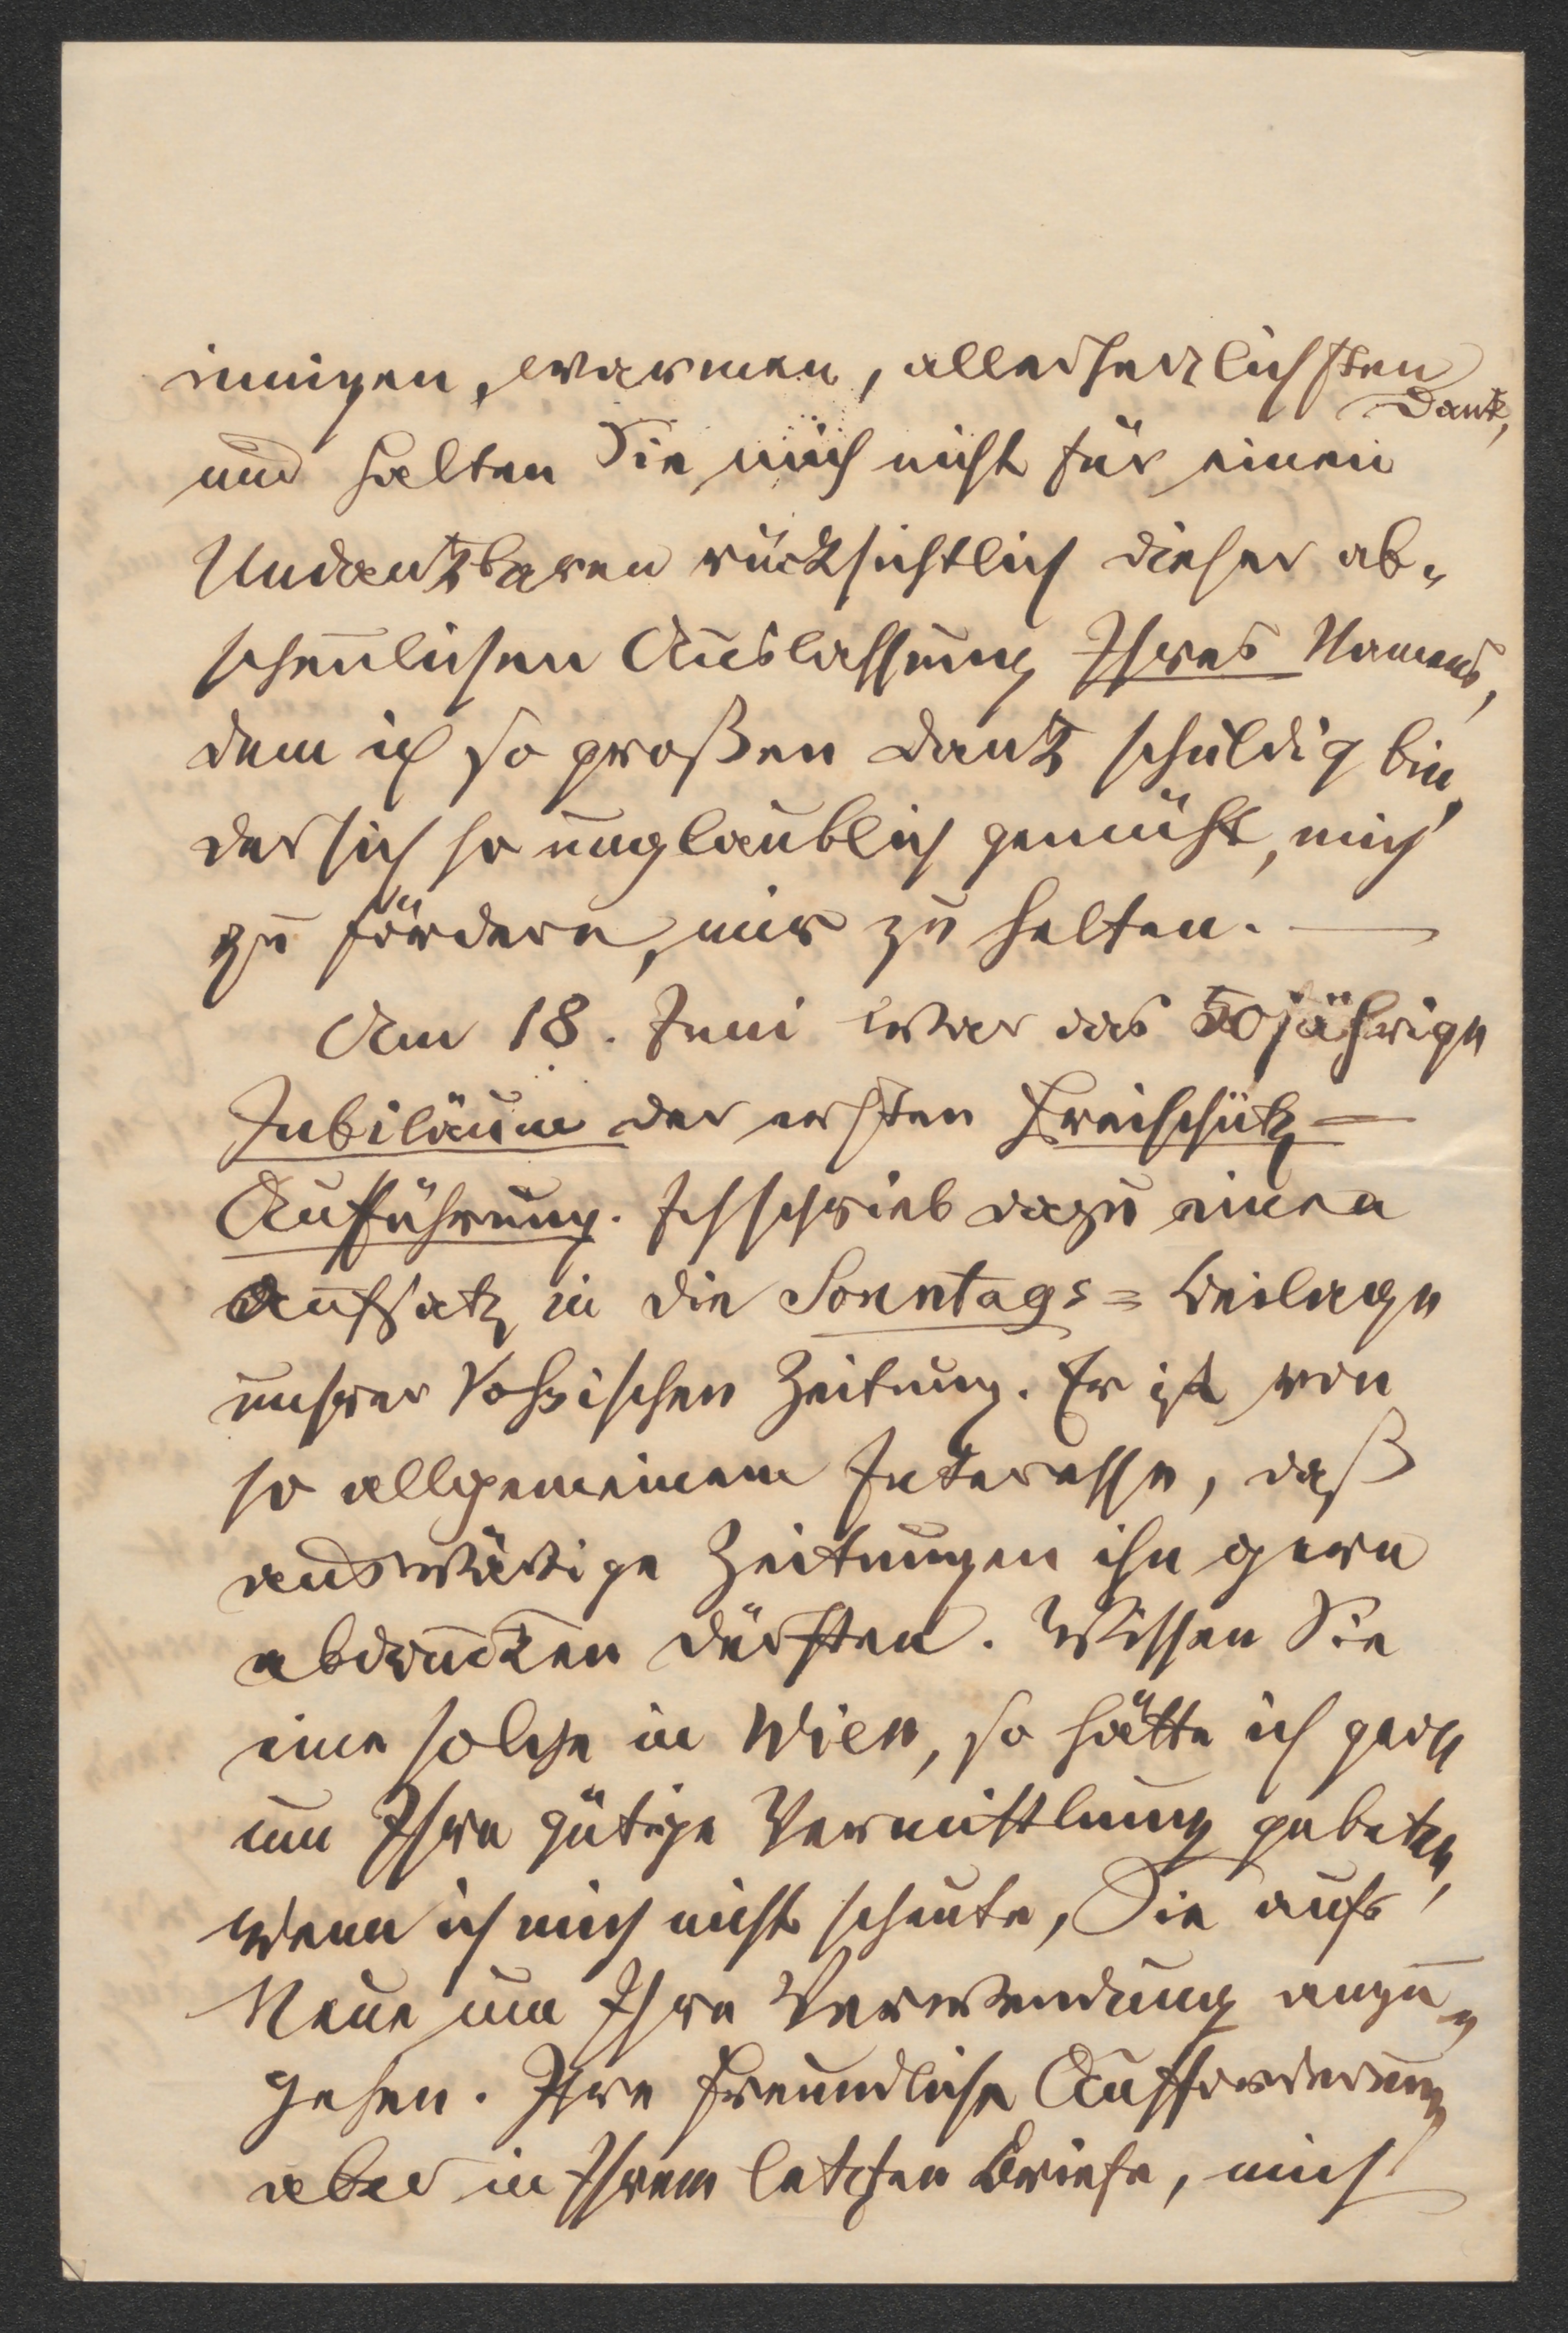 innigen, warmen, allerherzlichsten
Dank,
und halten Sie mich nicht für einen
Undankbaren rücksichtlich dieser ab-
scheulichen Auslassung Ihres Namens,
dem ich so großen Dank schuldig bin,
der sich so unglaublich gemüht, mich
zu fördern, mir zu helfen. —
Am 18. Juni war das 50jährige
Jubiläum der ersten Freischütz-
Aufführung. Ich schrieb dazu einen
Aufsatz in die Sonntags=Beilage
unsrer Vossischen Zeitung. Er ist von
so allgemeinem Interesse, daß
auswärtige Zeitungen ihn gern
abdrucken dürften. Wissen Sie
eine solche in Wien, so hätte ich gern
um Ihre gütige Vermittlung gebeten,
wenn ich mich nicht scheute, Sie aufs
Neue um Ihre Verwendung anzu-
gehen. Ihre freundliche Aufforderung
aber in Ihrem letzten Briefe, mich